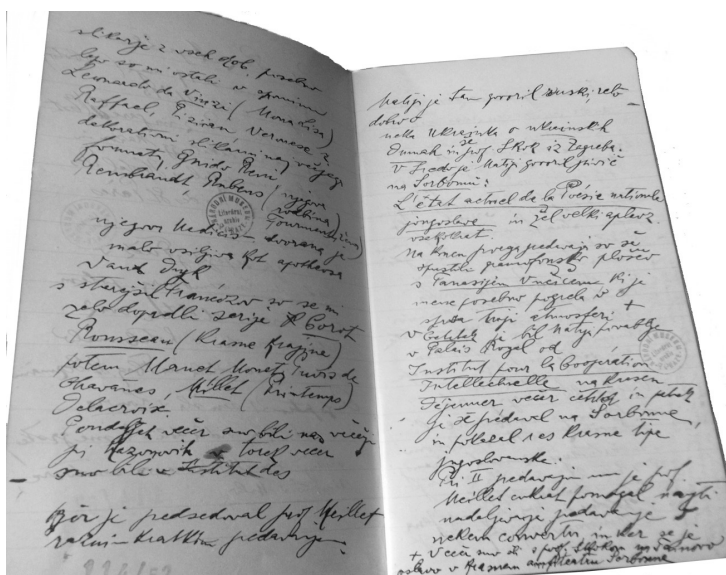 slikarje z vseh dob. posebno
lepo so mi ostali v spominu
Leonardo da Vinzi (Monalisa)
Raffael, Tizian Vernese z
dekorativni slikami največjega
formata, Guido Reni
Rembrandt Rubens (njegova
rodbina) Fourment
njegova Medicis dvorana je
malo vsiljiva kot apotheosa
Vand Dyk
s starejših Francozov so se mi
zelo dopadli serije Corot
Rousseau (Krasne krajine)
potem Manet Monet, Puvis de
Chavanes, Millet (Printemps)
Delacroix.
Pondeljek večer smo bili na večerji
pri torek večer
smo bili v Institut des
kjer je predsedoval prof Meillet
kratkim predavanje
Matija je tam govoril ruski, zelo
dobro
neka Ukrajinka o ukrainskih
Dumah in prof Skok iz Zagreba.
V sredo je Matija govoril
na Sorboni:
L'état actuel de la Poésie nationale
jougoslave in žel velki aplavz.
vsekolikrat
Na koncu prvega predavanja so se
spustile gramofonske plošče
s Tanasijem Vučićem ki je
mene posebno v
tuji atmosferi +
v četrtek je bil Matija povabljen
v Palais Royal od
Institut pour la Cooperation
Intellectuelle na krasen
Dejeuner večer četrtek in petek
je še predaval na Sorbonne,
in pokazal res krasne tipe
jugoslovanske.
Pri II predavanju mu je prof
Meillet enkrat pomagal najti
nadaljevanje predavanje
nekem in ker se je
+ Večer smo šli s prof Skokom na
v krasnem amfiteatru Sorbonne